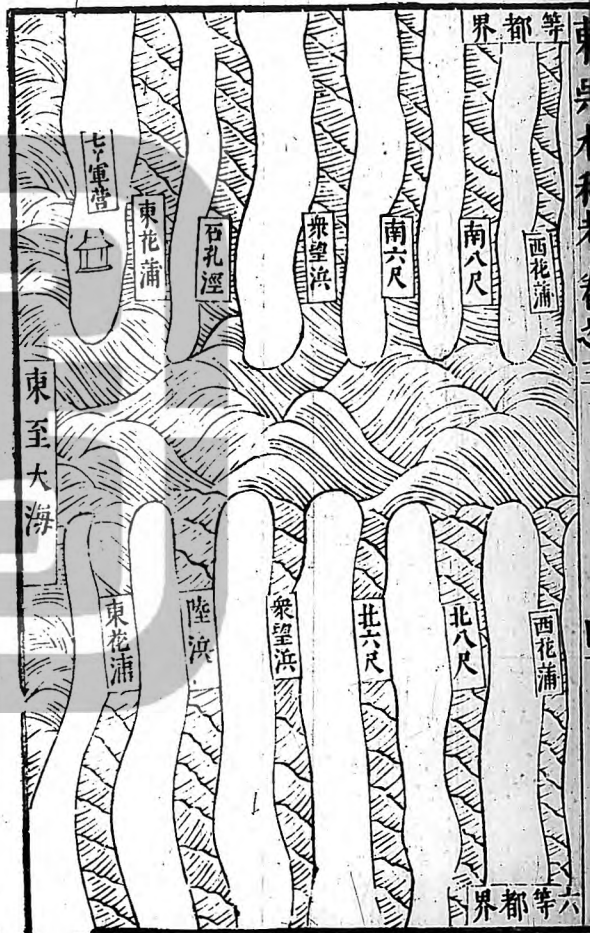 東吳水利考 卷之二
等都界
西花蒲
南八尺
南六尺
衆望浜
石孔涇
東花蒲
七丫軍營
東至大海
西花蒲
北八尺
北六尺
衆望浜
陸浜
東花浦
六等都界